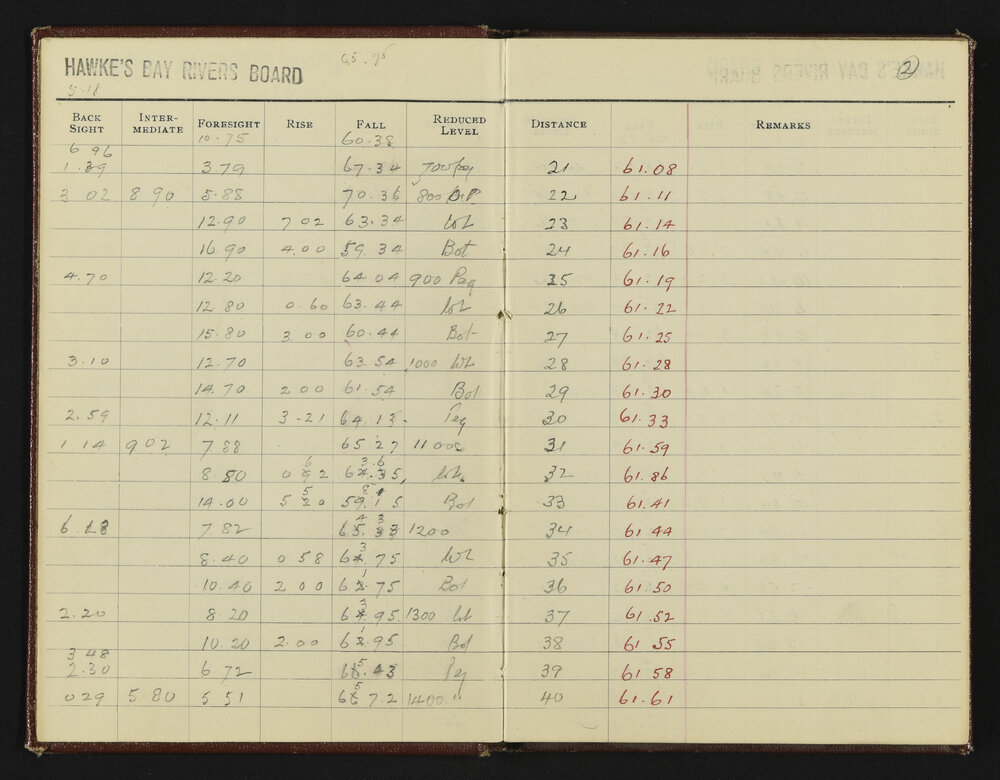 HAWKE'S BAY RIVERS BOARD 65.95
5.18
②
BACK SIGHT INTER-MEDIATE FORESIGHT RISE FALL REDUCED LEVEL DISTANCE REMARKS
10.75 60.38
6 96
1.39 3.79 67.34 700 Peg 21 61.08
3 02 8 90 5.88 70.36 800 22 61.11
12.90 7 02 63.34 Wl 23 61.14
16.90 4.00 59.34 Bot 24 61.16
4.70 12.20 64 04 900 Peg 25 61.19
12 80 0.60 63.44 Wl 26 61.22
15.80 3.00 60.44 Bot 27 61.25
3.10 12.70 63.54 1000 Wl 28 61.28
14.70 2 00 61.54 Bot 29 61.30
2.59 12.11 3-21 64.13. Peg 30 61.33
1 14 9 02 7 88 65 27 1100 31 61.59
8.80 Wl. 32 61.86
14.00 Bot 33 61.41
7.82 1200 34 61.44
8.40 0 58 Wl 35 61.47
10.40 2 00 Bot 36 61.50
2.20 8.20 1300 Wl 37 61.52
10.20 2.00 Bot 38 61 55
3 48
2.30 6 72 Peg 39 61 58
0 29 5.80 5.51 1400 " 40 61.61